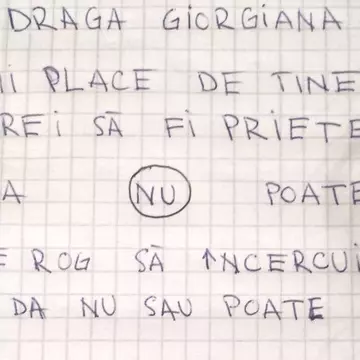 DRAGA GIORGIANA
ii PLACE DE TINE
REI SĂ FI PRIETE
A NU POATE
E ROG SĂ ÎNCERCUI
DA NU SAU POATE